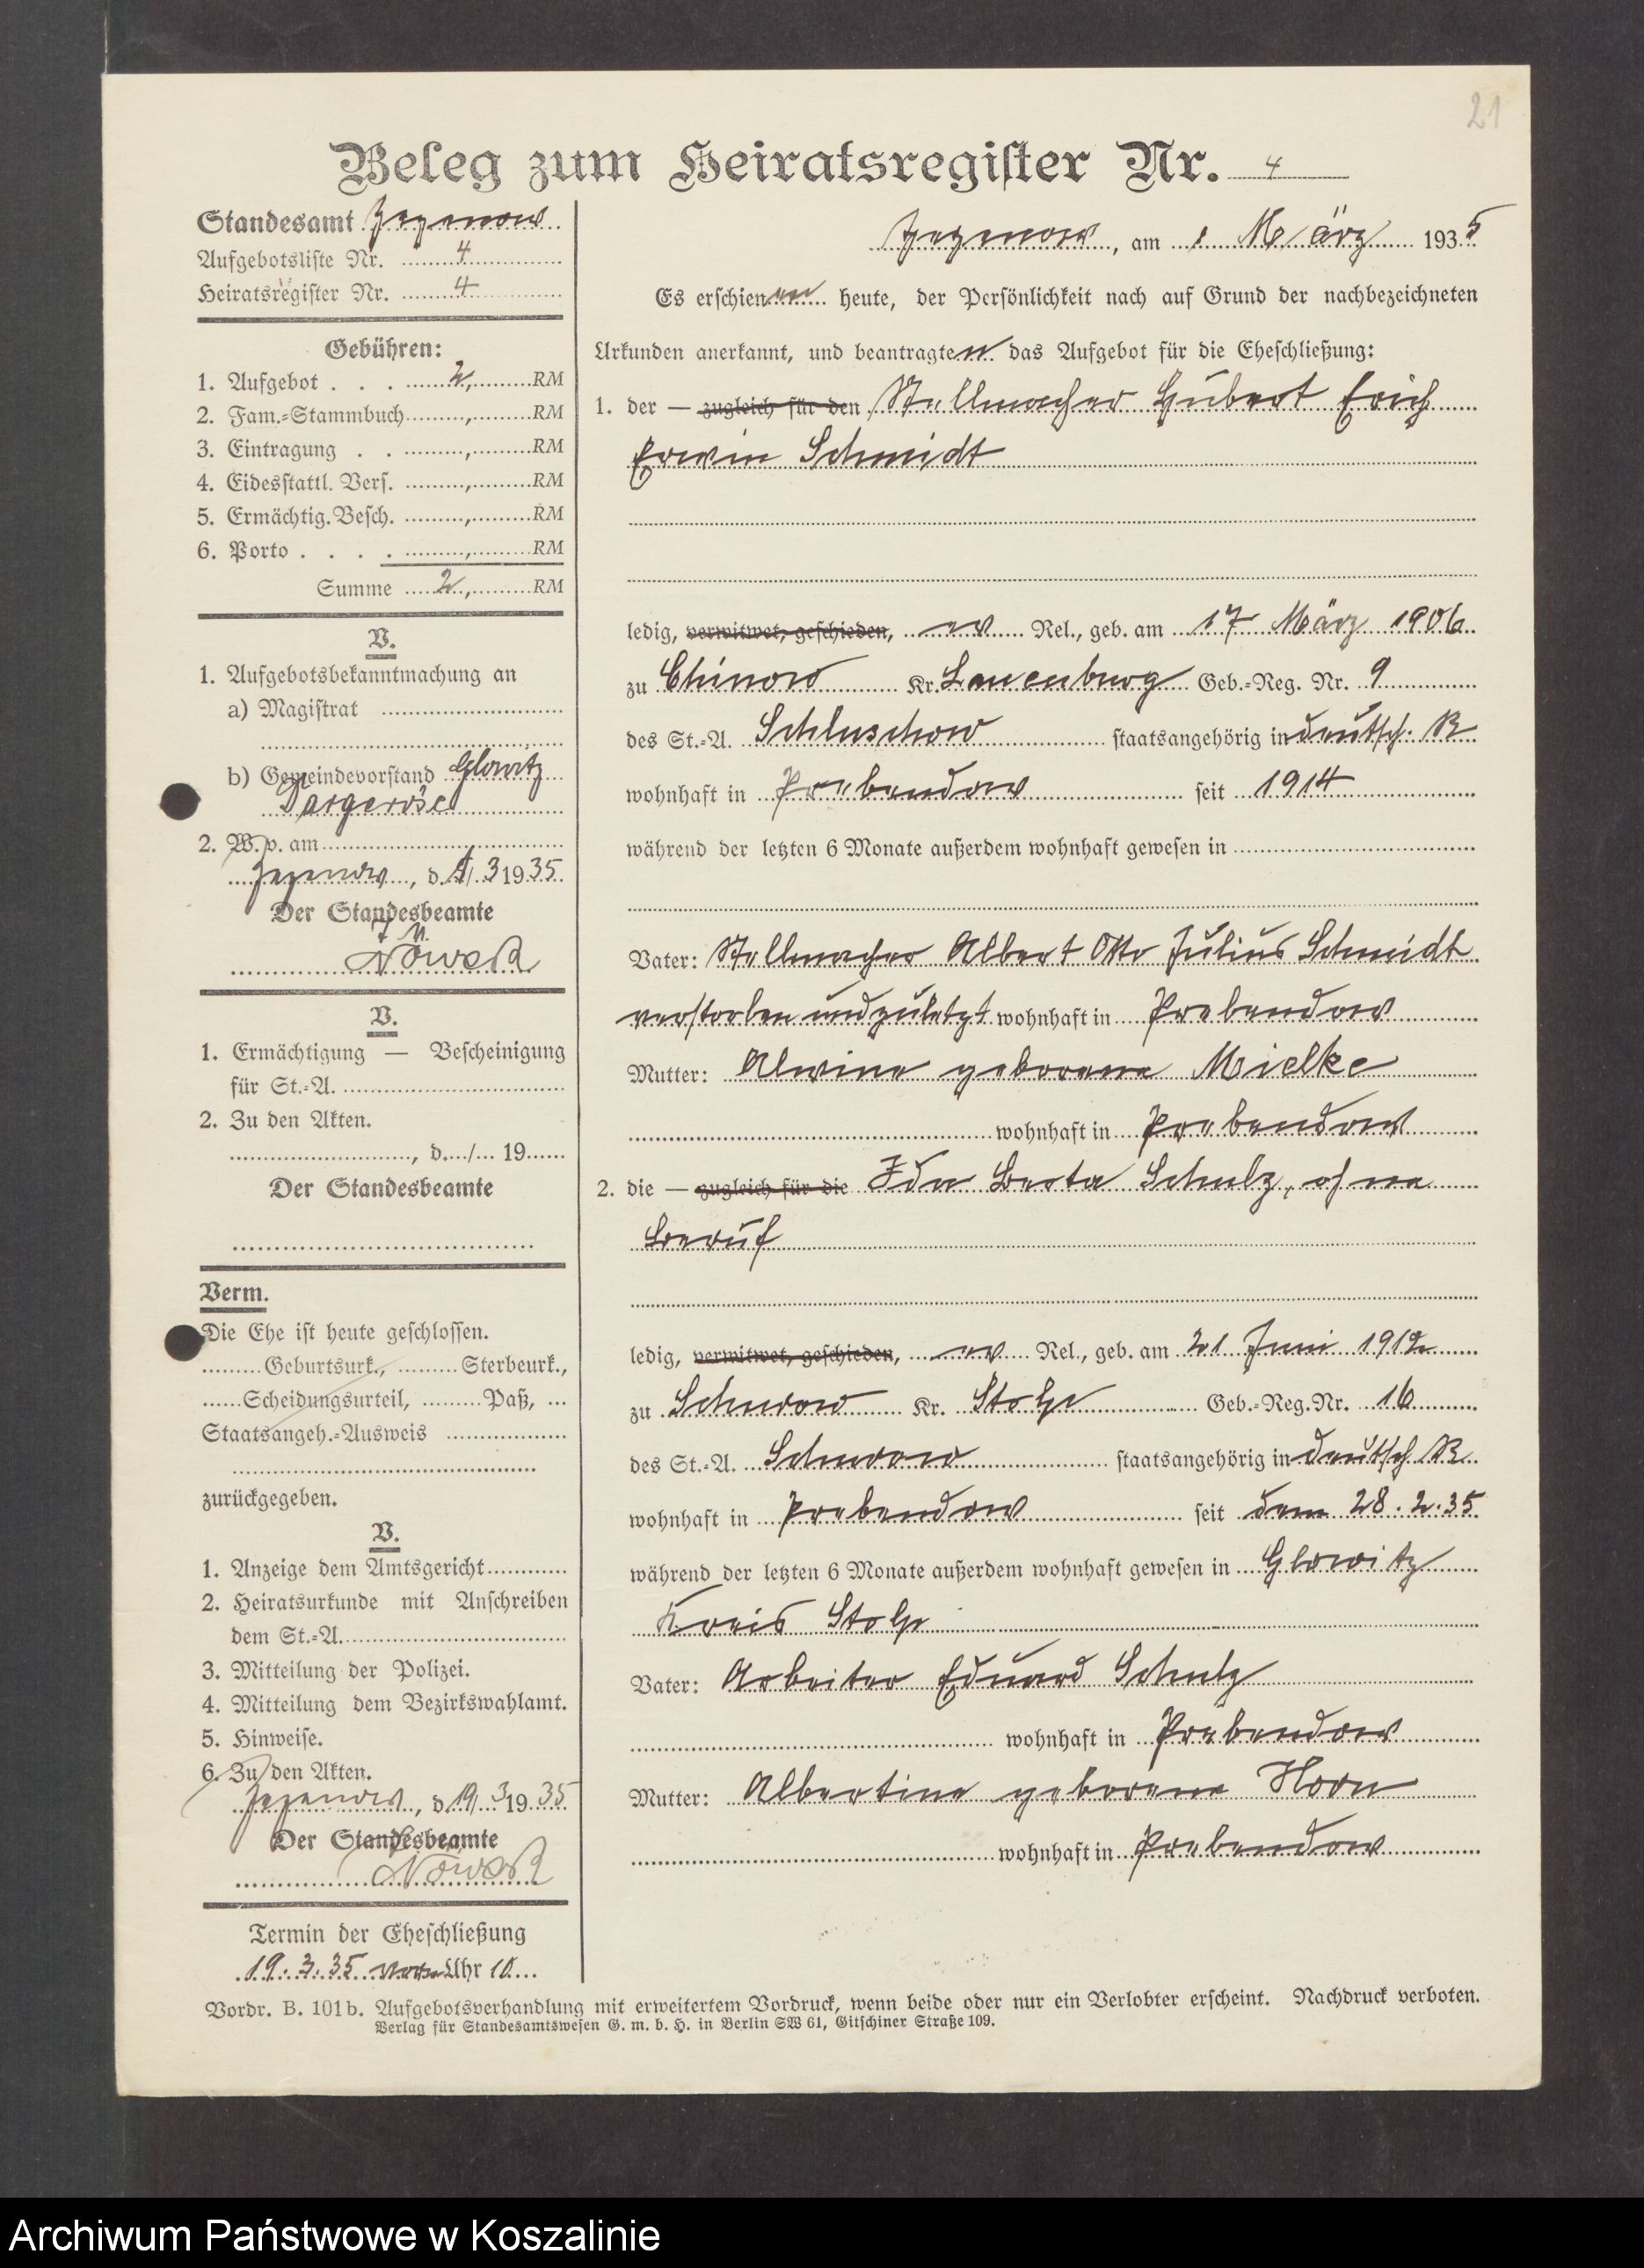 21
Beleg zum Heiratsregister Nr. 4
Standesamt Zezenow
Aufgebotsliste Nr. 4
Heiratsregister Nr. 4
Gebühren:
1. Aufgebot . . . 2, RM
2. Fam.-Stammbuch , RM
3. Eintragung . . , RM
4. Eidesstattl. Vers. , RM
5. Ermächtig. Besch. , RM
6. Porto . . . . , RM
Summe 2, RM
V.
1. Aufgebotsbekanntmachung an
a) Magistrat
b) Gemeindevorstand Glowitz
Dargeröse
2. W. v. am
Zezenow, d. 1/3 1935
Der Standesbeamte
Nowack
V.
1. Ermächtigung — Bescheinigung
für St.-A.
2. Zu den Akten.
, d. / 19
Der Standesbeamte
Verm.
Die Ehe ist heute geschlossen.
Geburtsurk., Sterbeurk.,
Scheidungsurteil, Paß,
Staatsangeh.-Ausweis
zurückgegeben.
V.
1. Anzeige dem Amtsgericht
2. Heiratsurkunde mit Anschreiben
dem St.-A.
3. Mitteilung der Polizei.
4. Mitteilung dem Bezirkswahlamt.
5. Hinweise.
6. Zu den Akten.
Zezenow, d. 19/3 1935
Der Standesbeamte
Nowack
Termin der Eheschließung
19.3.35 vorm Uhr 10
Zezenow, am 1 März 1935
Es erschienen heute, der Persönlichkeit nach auf Grund der nachbezeichneten
Urkunden anerkannt, und beantragten das Aufgebot für die Eheschließung:
1. der — zugleich für den Stellmacher Hubert Erich
Erwin Schmidt
ledig, verwitwet, geschieden, ev Rel., geb. am 17 März 1906
zu Chinow Kr. Lauenburg Geb.-Reg. Nr. 9
des St.-A. Schluschow staatsangehörig in deutsch. R
wohnhaft in Prebendow seit 1914
während der letzten 6 Monate außerdem wohnhaft gewesen in
Vater: Stellmacher Albert Otto Julius Schmidt
verstorben und zuletzt wohnhaft in Prebendow
Mutter: Alwine geborene Mielke
wohnhaft in Prebendow
2. die — zugleich für die Ida Berta Schulz, ohne
Beruf
ledig, verwitwet, geschieden, ev Rel., geb. am 21 Juni 1912
zu Schurow Kr. Stolp Geb.-Reg. Nr. 16
des St.-A. Schurow staatsangehörig in deutsch R
wohnhaft in Prebendow seit dem 28.2.35
während der letzten 6 Monate außerdem wohnhaft gewesen in Glowitz
Kreis Stolp
Vater: Arbeiter Eduard Schulz
wohnhaft in Prebendow
Mutter: Albertine geborene Horn
wohnhaft in Prebendow
Vordr. B. 101b. Aufgebotsverhandlung mit erweitertem Vordruck, wenn beide oder nur ein Verlobter erscheint. Nachdruck verboten.
Verlag für Standesamtswesen G. m. b. H. in Berlin SW 61, Gitschiner Straße 109.
Archiwum Państwowe w Koszalinie